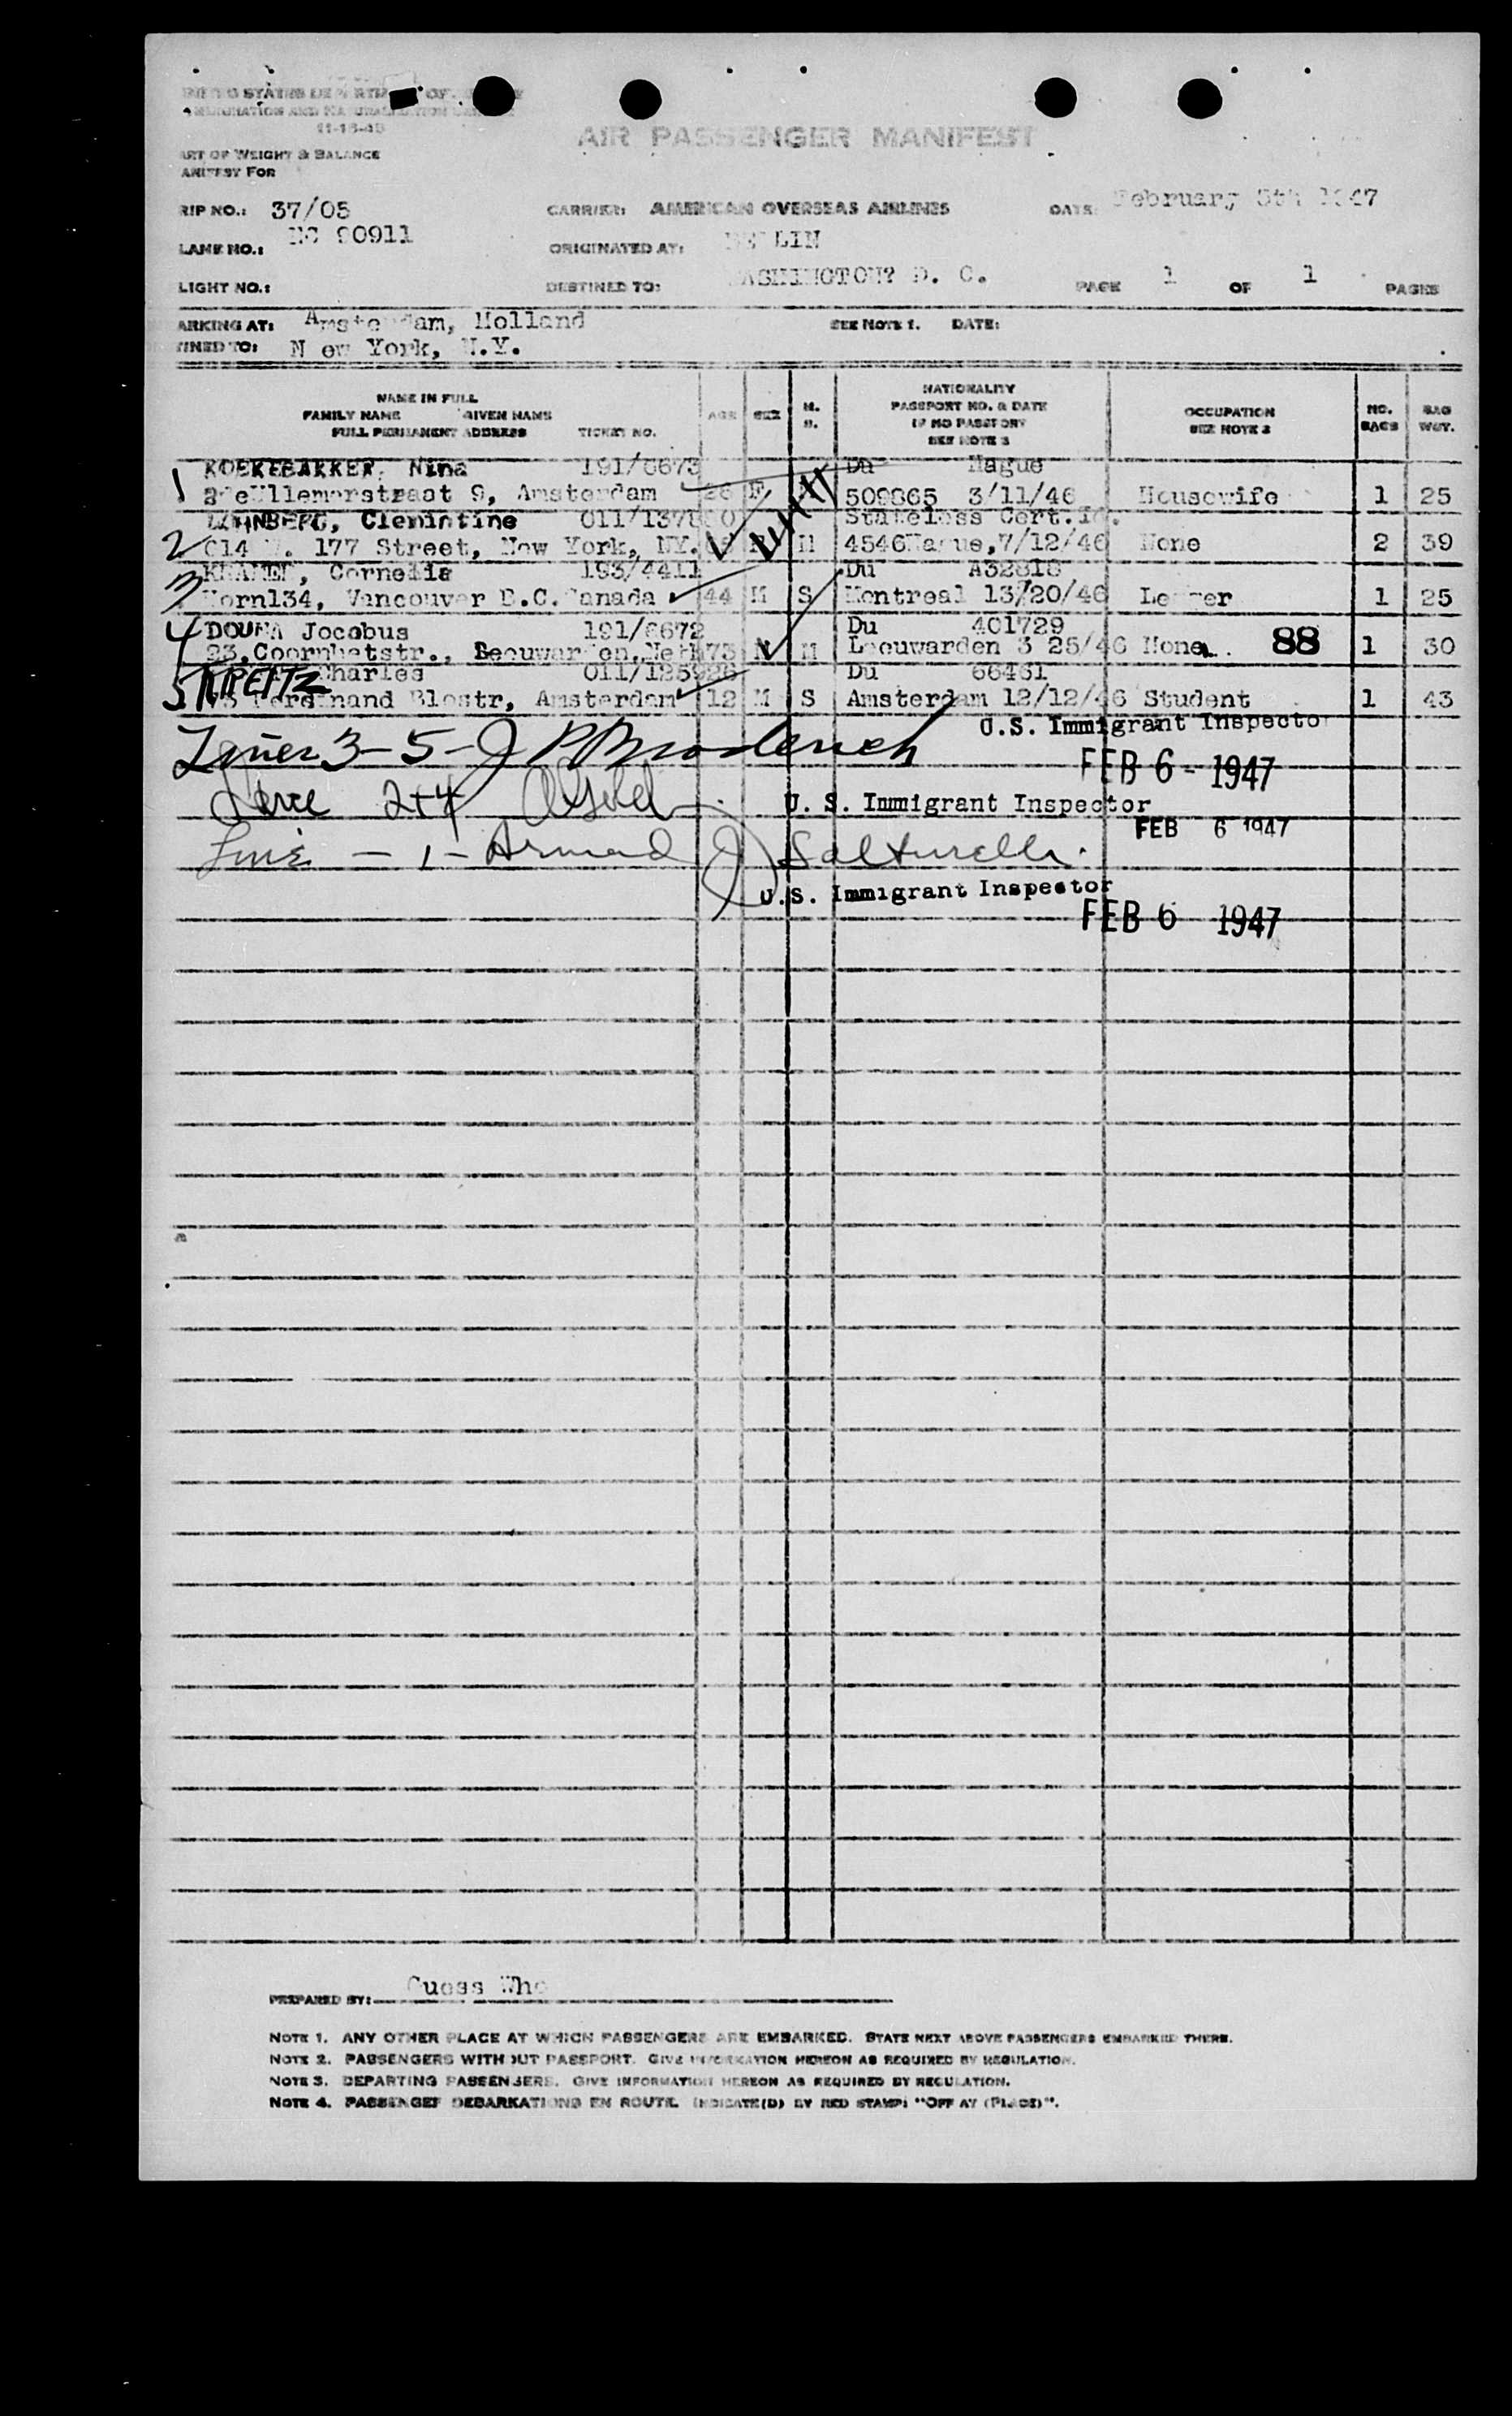 11-18-45
AIR PASSENGER MANIFEST
ART OF WEIGHT & BALANCE
ANIFEST FOR
RIP NO.: 37/05 CARRIER: AMERICAN OVERSEAS AIRLINES DATE: February 5th 1947
LANE NO.: NC 90911 ORIGINATED AT: BERLIN
LIGHT NO.: DESTINED TO: WASHINGTON? D. C. PAGE 1 OF 1 PAGES
ARKING AT: Amsterdam, Holland SEE NOTE 1. DATE:
TINED TO: N ew York, N.Y.
NAME IN FULL
FAMILY NAME GIVEN NAME
FULL PERMANENT ADDRESS TICKET NO.
AGE SEX M. S.
NATIONALITY
PASSPORT NO. & DATE
IF NO PASSPORT
SEE NOTE 3
OCCUPATION
SEE NOTE 2
NO. BAGS
BAG WGT.
1 KOEKEBAKKER, Nina 191/6673 Du Hague
9, Amsterdam 26 F 509865 3/11/46 Housewife 1 25
2 Clemintine Stateless Cert.
614 W. 177 Street, New York, NY. M 4546 Hague, 7/12/46 None 2 39
3 KRAMER, Cornelia 193/4411 Du A32818
Horn134, Vancouver B.C. Canada 44 M S Montreal 13/20/46 1 25
4 DOUMA Jocobus 191/6672 Du 401729
23, Beouwarden, Neth 73 M M Leeuwarden 3 25/46 None 88 1 30
5 Charles 011/125926 Du 66461
Ferdinand Blostr, Amsterdam 12 M S Amsterdam 12/12/46 Student 1 43
Lines 3-5- J P Broderick U.S. Immigrant Inspector
FEB 6 - 1947
2+4 U. S. Immigrant Inspector
FEB 6 1947
Line - 1 - Armand J Salturelli.
U.S. Immigrant Inspector
FEB 6 1947
PREPARED BY: Guess Who
NOTE 1. ANY OTHER PLACE AT WHICH PASSENGERS ARE EMBARKED. STATE NEXT ABOVE PASSENGERS EMBARKED THERE.
NOTE 2. PASSENGERS WITHOUT PASSPORT. GIVE INFORMATION HEREON AS REQUIRED BY REGULATION.
NOTE 3. DEPARTING PASSENGERS. GIVE INFORMATION HEREON AS REQUIRED BY REGULATION.
NOTE 4. PASSENGER DEBARKATIONS EN ROUTE. INDICATE(D) BY RED STAMP: "OFF AT (PLACE)".